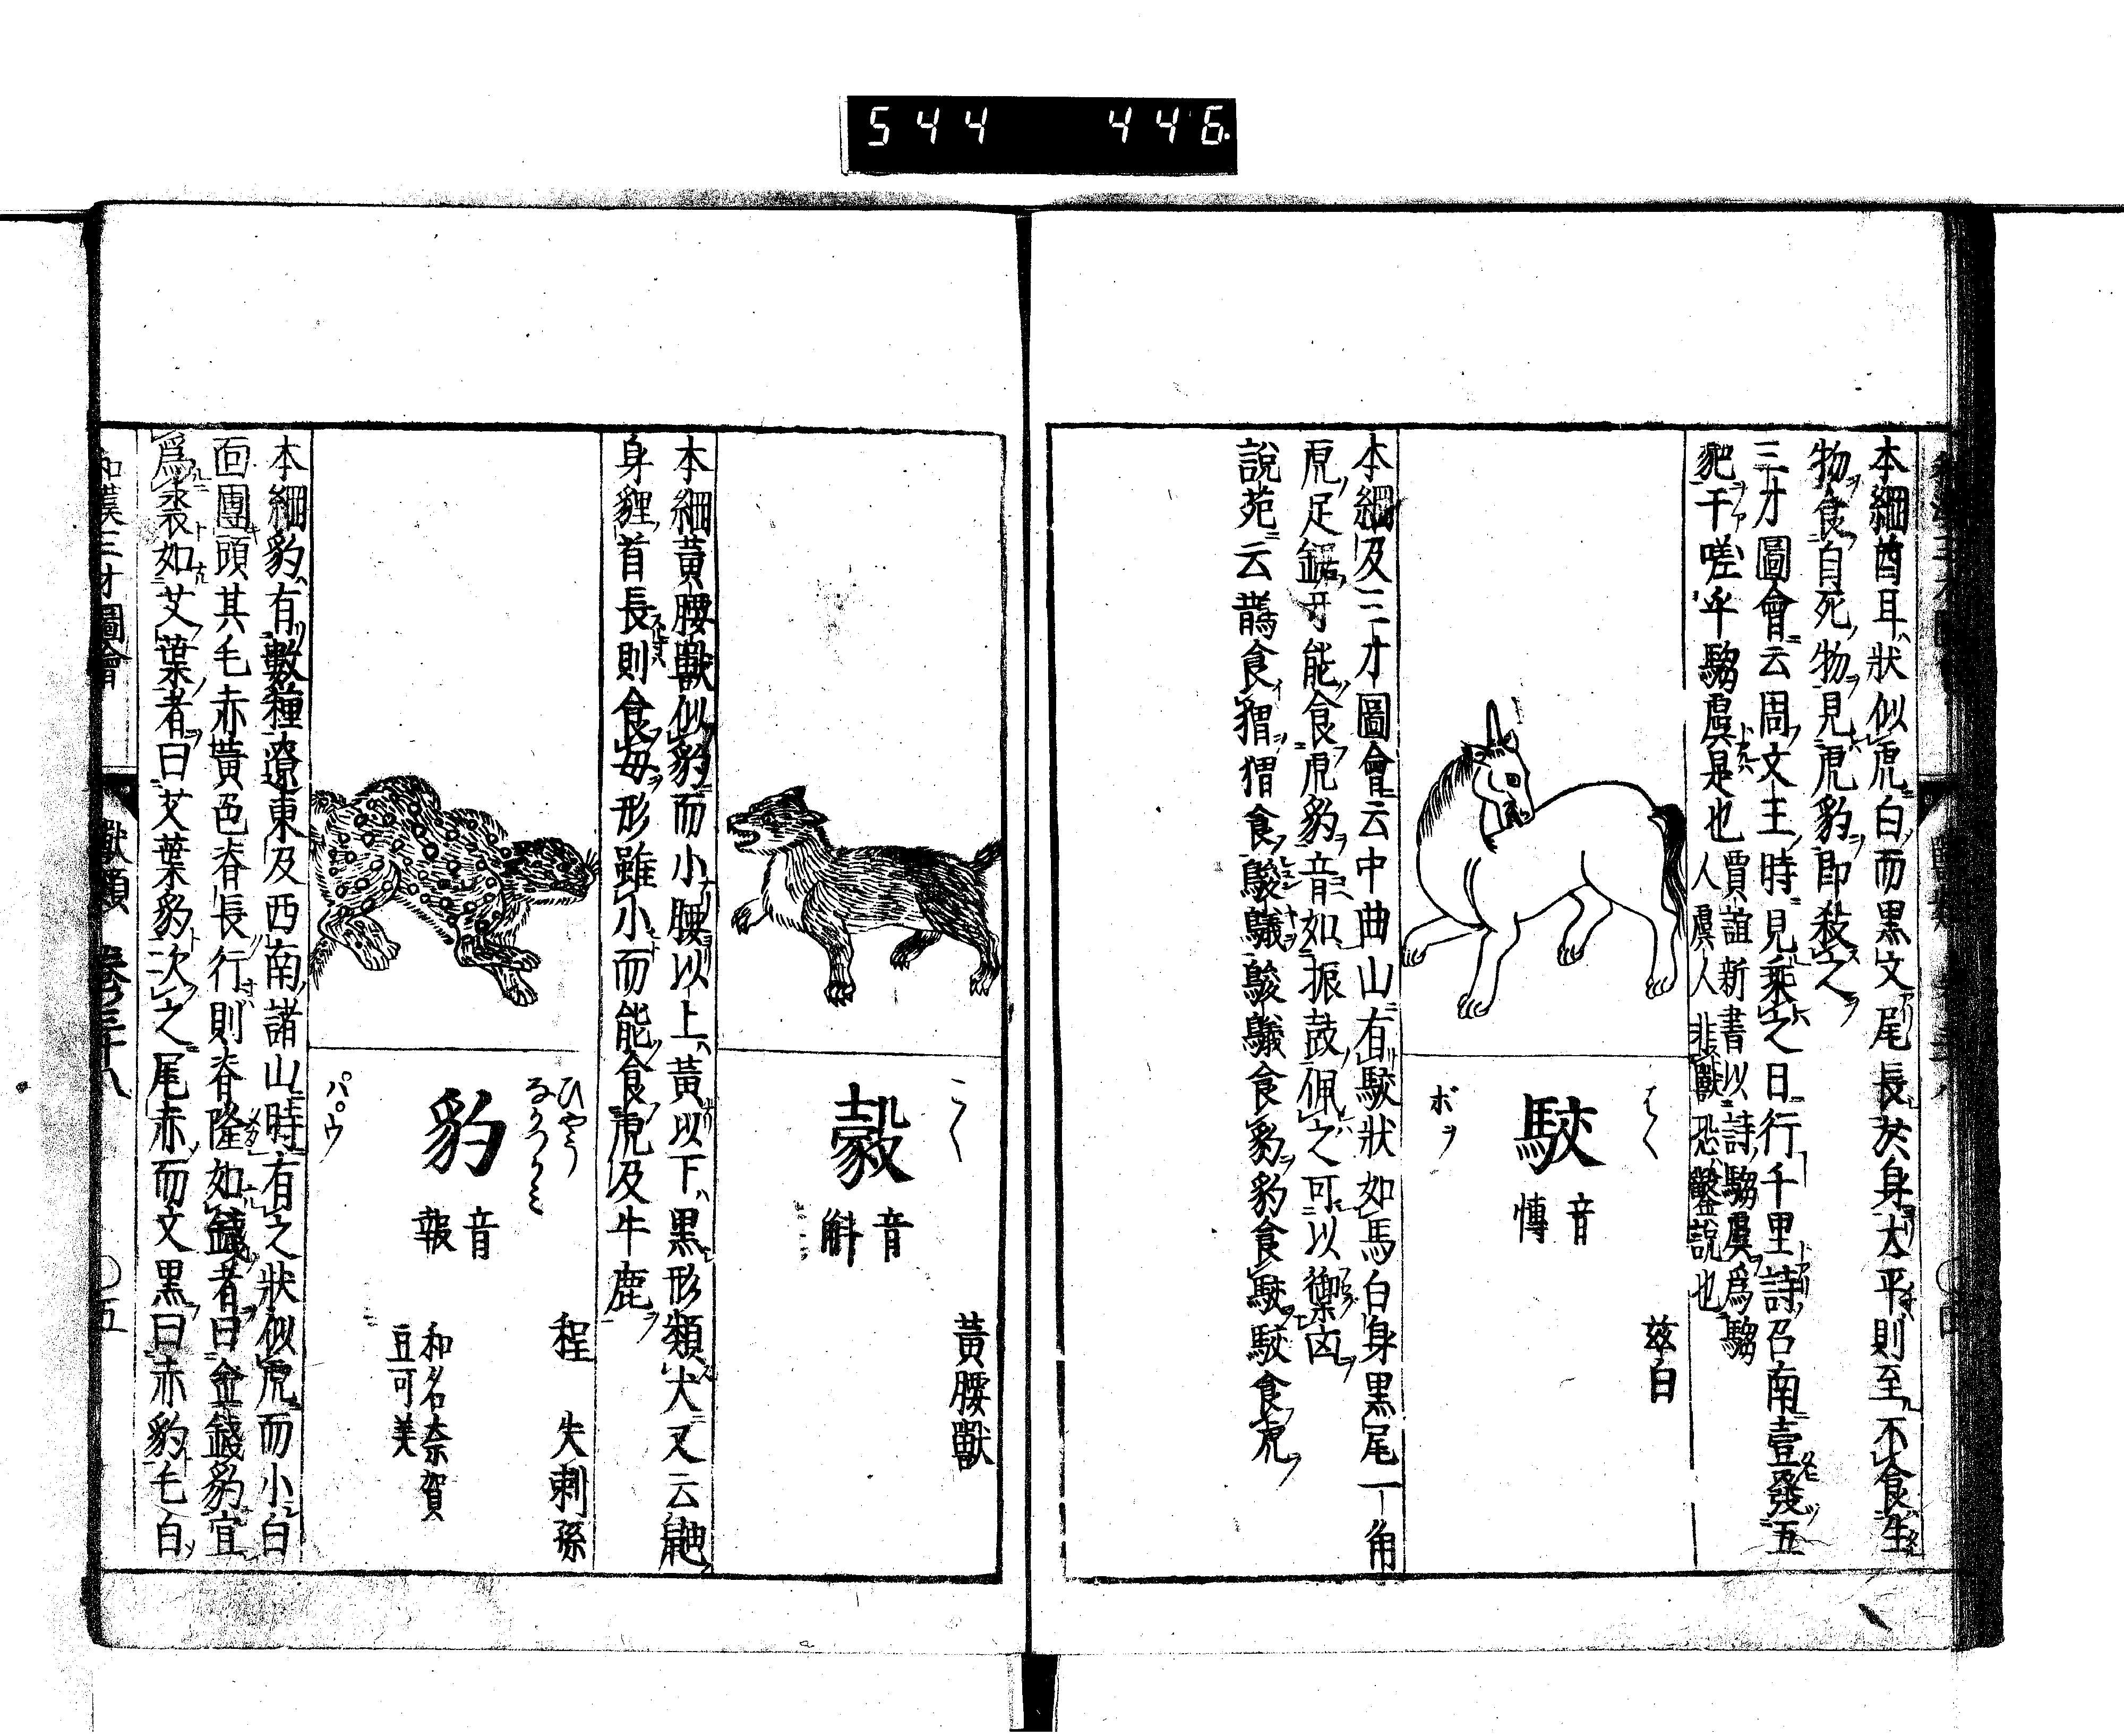 544 446
本綱酋耳狀似虎白而黒文尾長於身太平則至不食生
物食自死物見虎豹即殺之
三才圖會云周文王時見乗之日行千里詩召南壹發五
豝于嗟乎騶虞是也
賈誼新書以詩騶虞爲騶
人虞人非獸恐鑿說也
はく
駮
音
慱
ボヲ
茲白
本綱及三才圖會云中曲山有駮狀如馬白身黒尾一角
虎足鋸牙能食虎豹音如振鼓佩之可以禦凶
說苑云鵲食猬猬食駿䮗駿䮗食豹豹食駮駮食虎
こく
㺉
音
斛
黃腰獸
本綱黃腰獸似豹而小腰以上黃以下黒形類犬又云鼬
身貍首長則食母形雖小而能食虎及牛鹿
ひやう
なかつかミ
豹
音
報
パ゚ウ
程
失刺孫
和名奈賀
豆可美
本綱豹有數種遼東及西南諸山時有之狀似虎而小白
面團頭其毛赤黃色脊長行則脊隆如錢者曰金錢豹宜
爲裘如艾葉者曰艾葉豹次之尾赤而文黒曰赤豹毛白
和漢三才圖會 獸類 卷之三十八 〇五